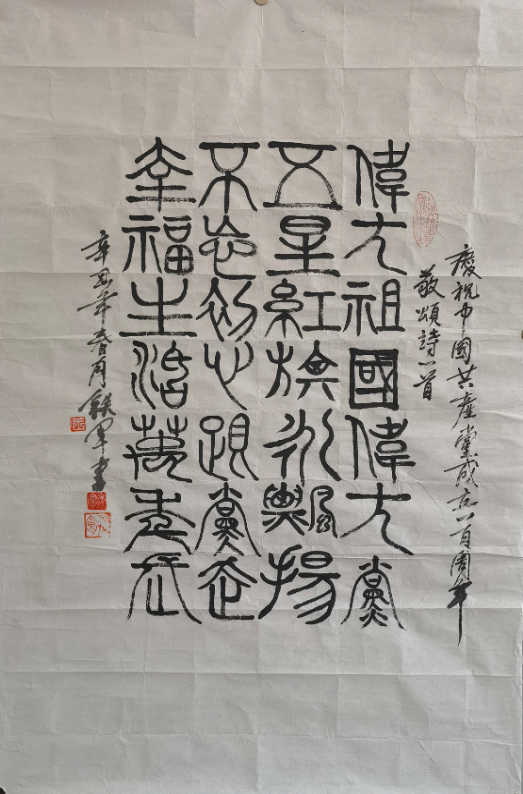 慶祝中國共產黨成立一百周年
敬頌詩一首
偉大祖國偉大黨
五星紅旗永飄揚
不忘初心跟黨走
幸福生活萬年長
辛丑年春月鐵軍書